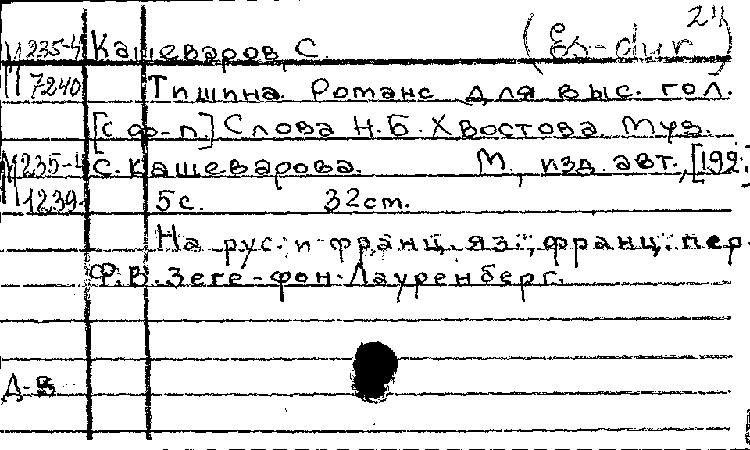 24
М 235-4 Кашеваров, С. (Es-dur)
7240 Тишина. Романс для выс. гол.
[с ф-п.] Слова Н.Б. Хвостова. Муз.
М 235-4 С. Кашеварова. М., изд. авт., [192
1239 5 с. 32 см.
На рус. и франц. яз.; франц. пер.
Ф.В. Зеге-фон-Лауренберг.
Д-в